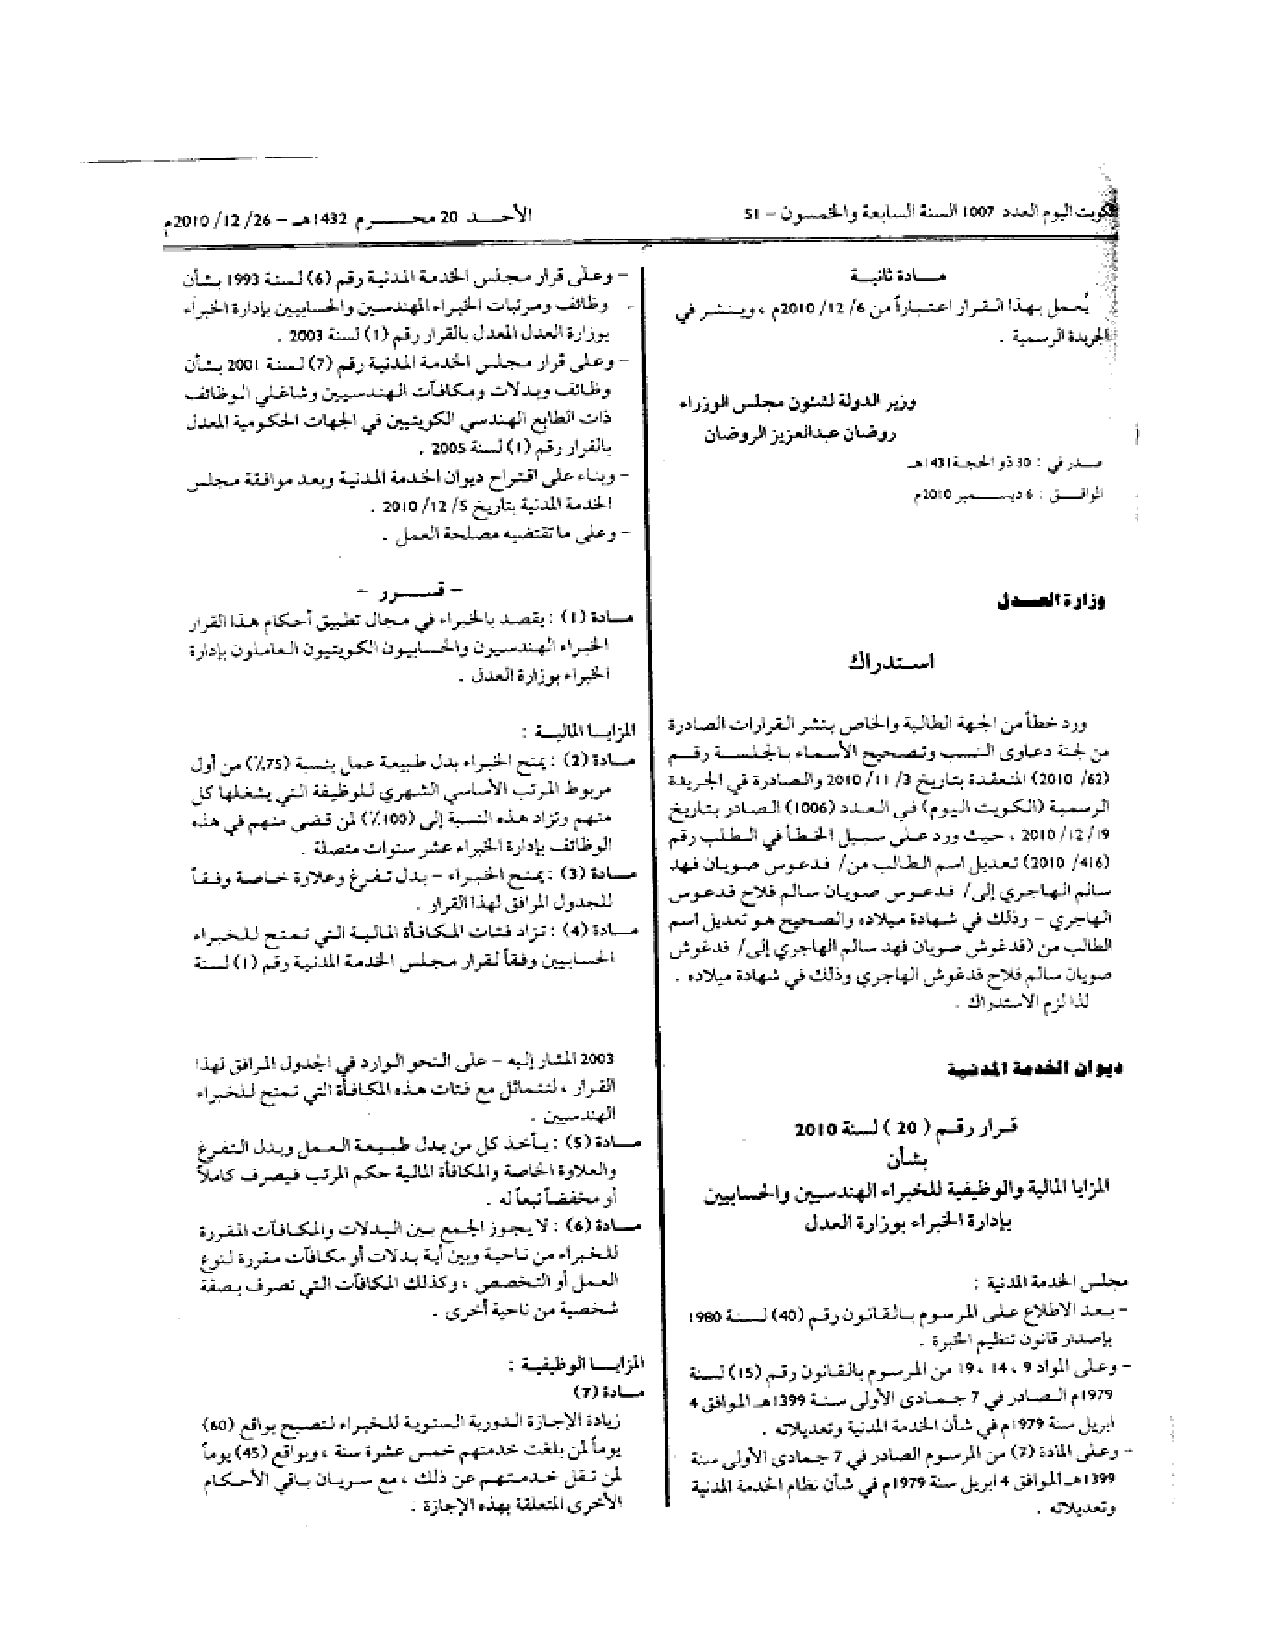 الكويت اليوم العدد 1007 السنة السابعة والخمسون - 51
الأحـــد 20 محـــــرم 1432هـ - 26/ 12/ 2010م
مـــادة ثانيـــة
يُعمل بهذا القرار اعتباراً من 6/ 12/ 2010م ، وينشر في
الجريدة الرسمية .
وزير الدولة لشئون مجلس الوزراء
روضان عبدالعزيز الروضان
صدر في : 30 ذو الحجة 1431هـ
الموافـــق : 6 ديســـمبر 2010م
وزارة العـــدل
استـدراك
ورد خطأ من الجهة الطالبة والخاص بنشر القرارات الصادرة
من لجنة دعاوى النسب وتصحيح الأسماء بالجلسة رقم
(62/ 2010) المنعقدة بتاريخ 3/ 11/ 2010 والصادرة في الجريدة
الرسمية (الكويت اليوم) في العدد (1006) الصادر بتاريخ
19/ 12/ 2010 ، حيث ورد على سبيل الخطأ في الطلب رقم
(416/ 2010) تعديل اسم الطالب من/ فدعوس صويان فهد
سالم الهاجري إلى/ فدعوس صويان سالم فلاح فدعوس
الهاجري - وذلك في شهادة ميلاده والصحيح هو تعديل اسم
الطالب من (فدغوش صويان فهد سالم الهاجري إلى/ فدغوش
صويان سالم فلاح فدغوش الهاجري وذلك في شهادة ميلاده .
لذا لزم الاستدراك .
ديوان الخدمة المدنية
قـرار رقـم ( 20 ) لسنة 2010
بشأن
المزايا المالية والوظيفية للخبراء الهندسيين والحسابيين
بإدارة الخبراء بوزارة العدل
مجلس الخدمة المدنية :
- بعد الاطلاع على المرسوم بالقانون رقم (40) لسنة 1980
بإصدار قانون تنظيم الخبرة .
- وعلى المواد 9 ، 14 ، 19 من المرسوم بالقانون رقم (15) لسنة
1979م الصادر في 7 جمادى الأولى سنة 1399هـ الموافق 4
ابريل سنة 1979م في شأن الخدمة المدنية وتعديلاته .
- وعلى المادة (7) من المرسوم الصادر في 7 جمادى الأولى سنة
1399هـ الموافق 4 ابريل سنة 1979م في شأن نظام الخدمة المدنية
وتعديلاته .
- وعلى قرار مجلس الخدمة المدنية رقم (6) لسنة 1993 بشأن
وظائف ومرتبات الخبراء المهندسين والحسابيين بإدارة الخبراء
بوزارة العدل المعدل بالقرار رقم (1) لسنة 2003 .
- وعلى قرار مجلس الخدمة المدنية رقم (7) لسنة 2001 بشأن
وظائف وبدلات ومكافآت المهندسيين وشاغلي الوظائف
ذات الطابع الهندسي الكويتيين في الجهات الحكومية المعدل
بالقرار رقم (1) لسنة 2005 .
- وبناء على اقتراح ديوان الخدمة المدنية وبعد موافقة مجلس
الخدمة المدنية بتاريخ 5/ 12/ 2010 .
- وعلى ما تقتضيه مصلحة العمل .
- قـــــرر -
مـادة (1) : يقصد بالخبراء في مجال تطبيق أحكام هذا القرار
الخبراء الهندسيون والحسابيون الكويتيون العاملون بإدارة
الخبراء بوزارة العدل .
المزايـا الماليـة :
مـادة (2) : يمنح الخبراء بدل طبيعة عمل بنسبة (75٪) من أول
مربوط المرتب الأساسي الشهري للوظيفة التي يشغلها كل
منهم وتزاد هذه النسبة إلى (100٪) لمن قضى منهم في هذه
الوظائف بإدارة الخبراء عشر سنوات متصلة .
مـادة (3) : يمنح الخبراء - بدل تفرغ وعلاوة خاصة وفقاً
للجدول المرافق لهذا القرار .
مـادة (4) : تزاد فئات المكافأة المالية التي تمنح للخبراء
الحسابيين وفقاً لقرار مجلس الخدمة المدنية رقم (1) لسنة
2003 المشار إليه - على النحو الوارد في الجدول المرافق لهذا
القرار ، لتتماثل مع فئات هذه المكافأة التي تمنح للخبراء
الهندسين .
مـادة (5) : يأخذ كل من بدل طبيعة العمل وبدل التفرغ
والعلاوة الخاصة والمكافأة المالية حكم المرتب فيصرف كاملاً
أو مخفضاً تبعاً له .
مـادة (6) : لا يجوز الجمع بين البدلات والمكافآت المقررة
للخبراء من ناحية وبين أية بدلات أو مكافآت مقررة لنوع
العمل أو التخصص ، وكذلك المكافآت التي تصرف بصفة
شخصية من ناحية أخرى .
المزايـا الوظيفيـة :
مـادة (7)
زيادة الإجازة الدورية السنوية للخبراء لتصبح بواقع (60)
يوماً لمن بلغت خدمتهم خمس عشرة سنة ، وبواقع (45) يوماً
لمن تقل خدمتهم عن ذلك ، مع سريان باقي الأحكام
الأخرى المتعلقة بهذه الإجازة .